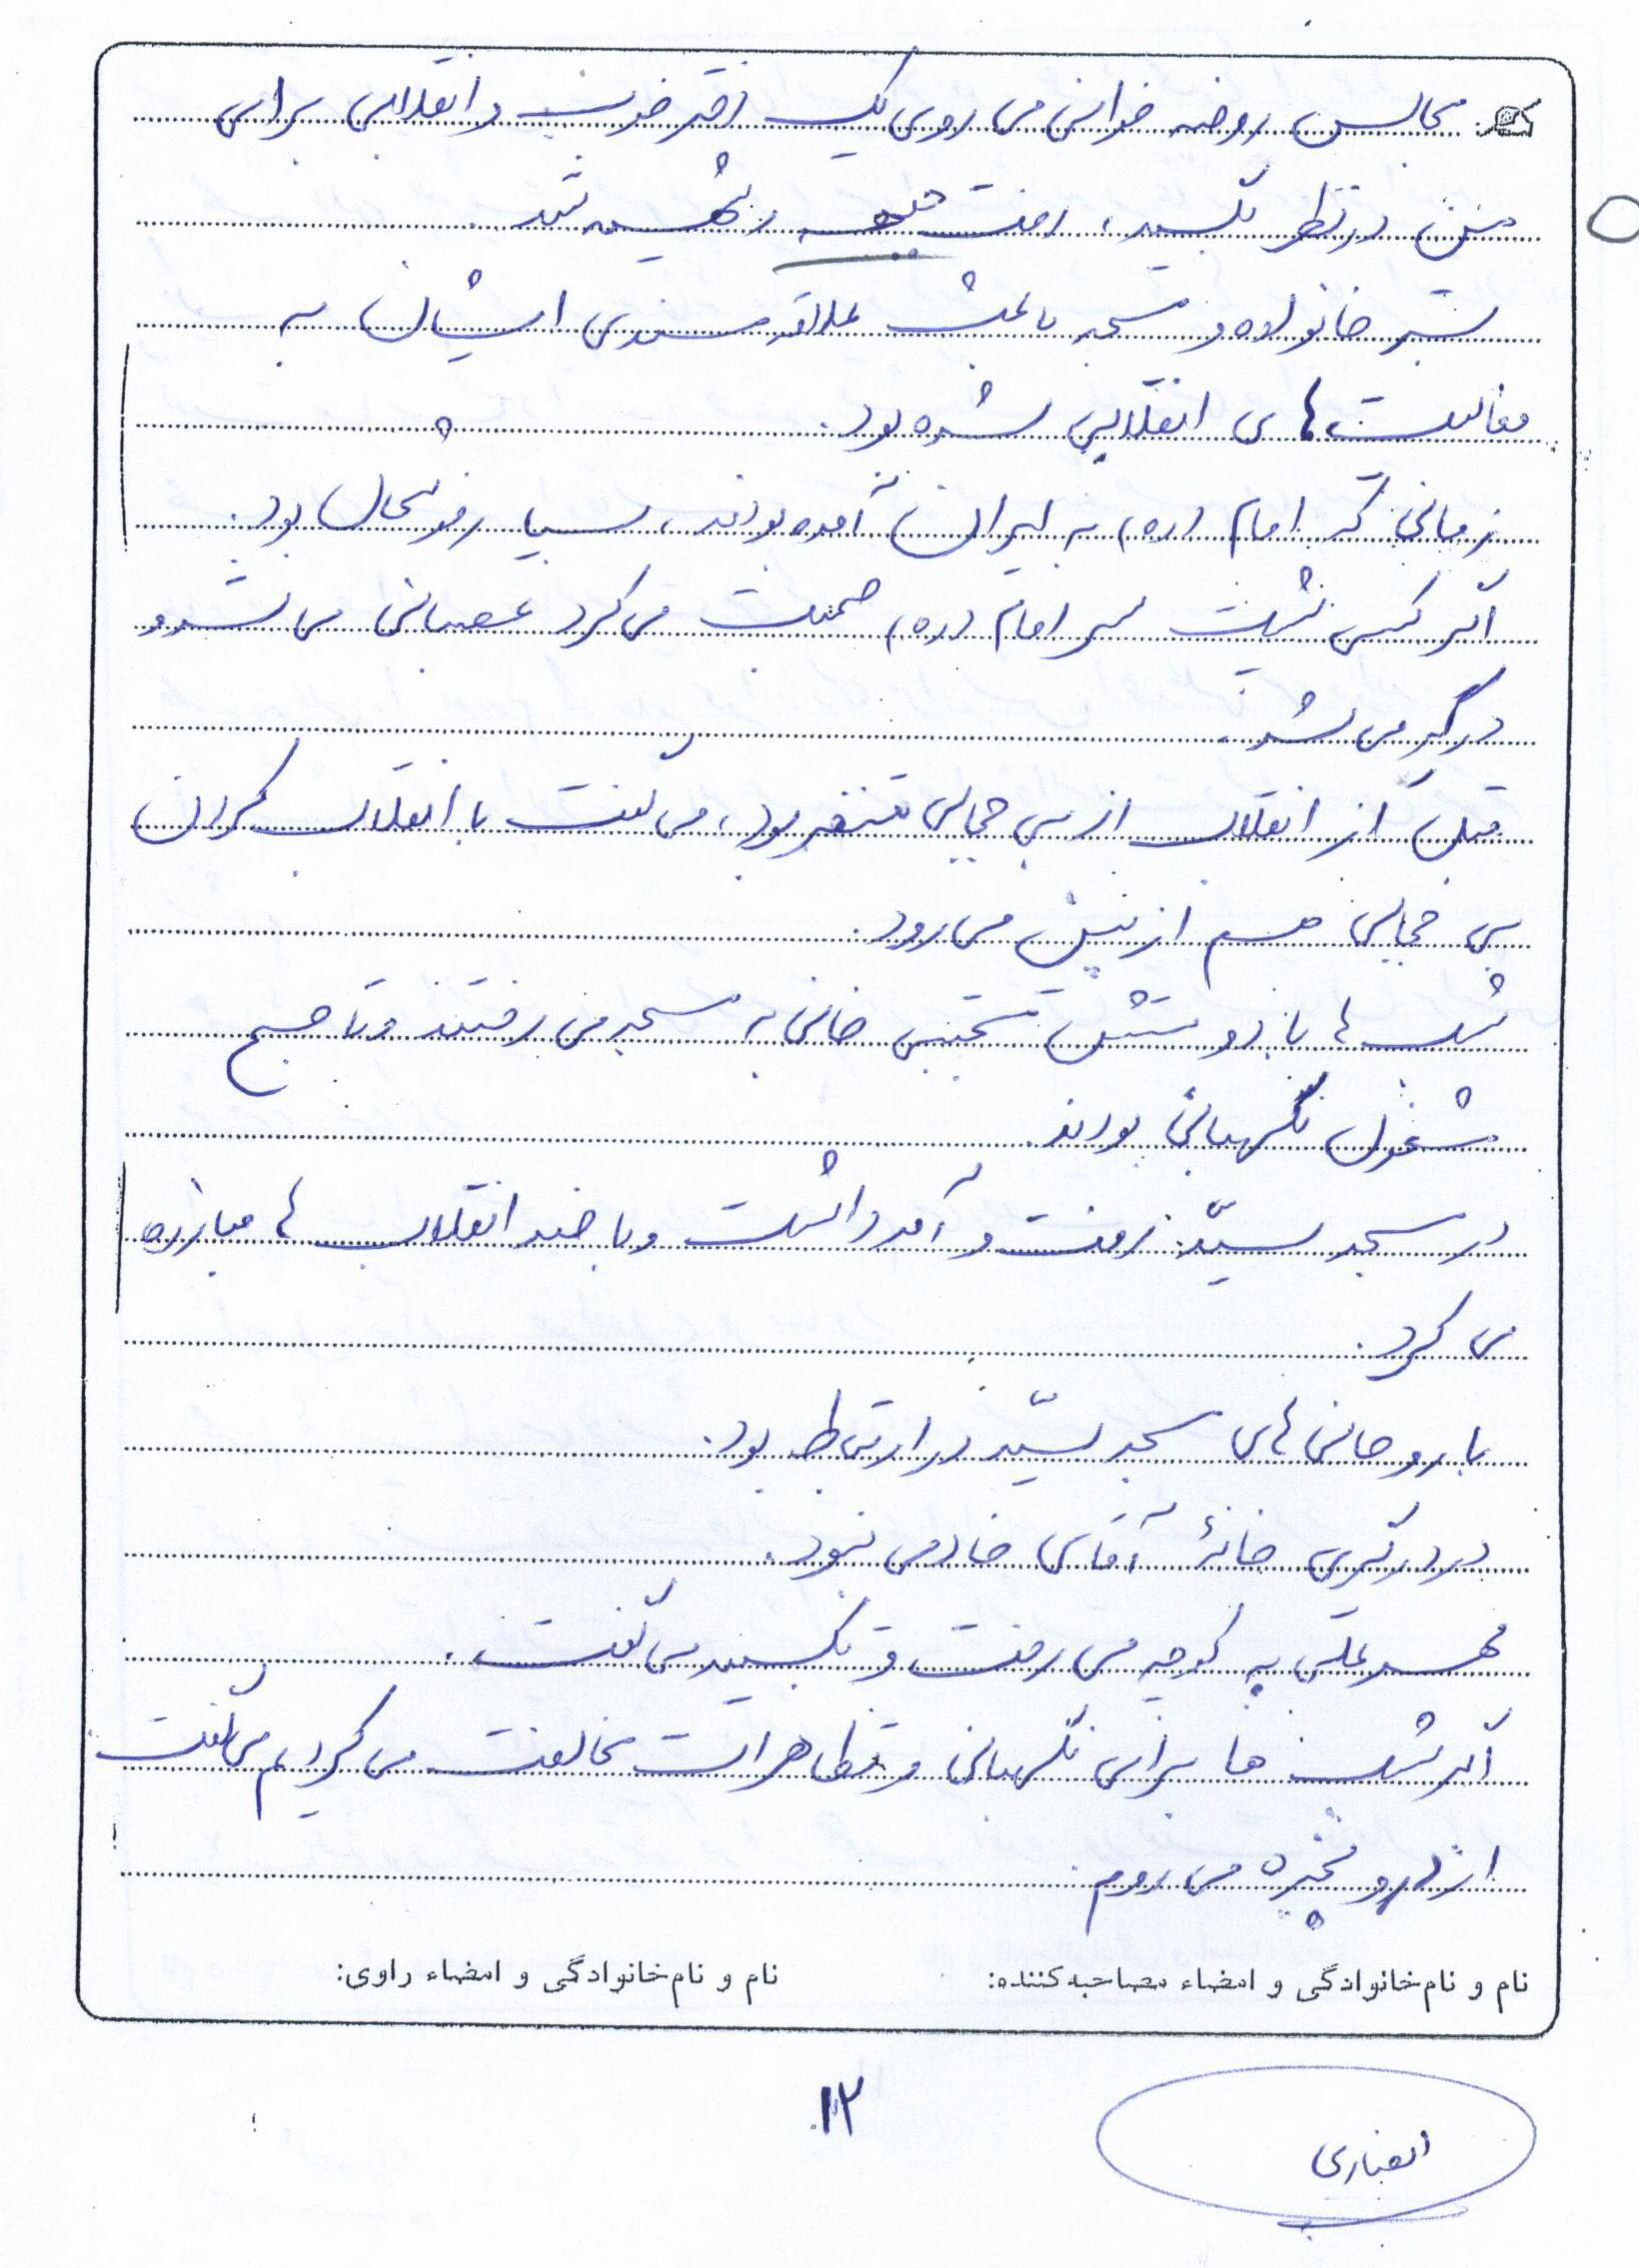 مجالس روضه خوانی می روی یک دختر خوب و انقلابی برای
من در نظر بگیرید، رفت جبهه و شهید شد.
بستر خانواده و مسجد باعث علاقه مندی ایشان به
فعالیت های انقلابی شده بود.
زمانی که امام (ره) به ایران آمده بودند، بسیار خوشحال بود.
اگر کسی پشت سر امام (ره) صحبت می کرد عصبانی می شد و
درگیر می شد.
قبل از انقلاب از بی حجابی متنفر بود، می گفت با انقلاب کردن
بی حجابی هم از بین می رود.
شب ها با دوستش مجتبی خانی به مسجد می رفتند و تا صبح
مشغول نگهبانی بودند.
در مسجد سیّد رفت و آمد داشت و با ضد انقلاب ها مبارزه
می کرد.
با روحانی های مسجد سیّد در ارتباط بود.
در درگیری خانهٔ آقای خادمی نبود.
مهر علی به کوچه می رفت و تکبیر می گفت.
اگر شب ها برای نگهبانی و تظاهرات مخالفت می کردیم می گفت
از در و پنجره می روم.
نام و نام خانوادگی و امضاء مصاحبه کننده: نام و نام خانوادگی و امضاء راوی:
۱۲
انصاری